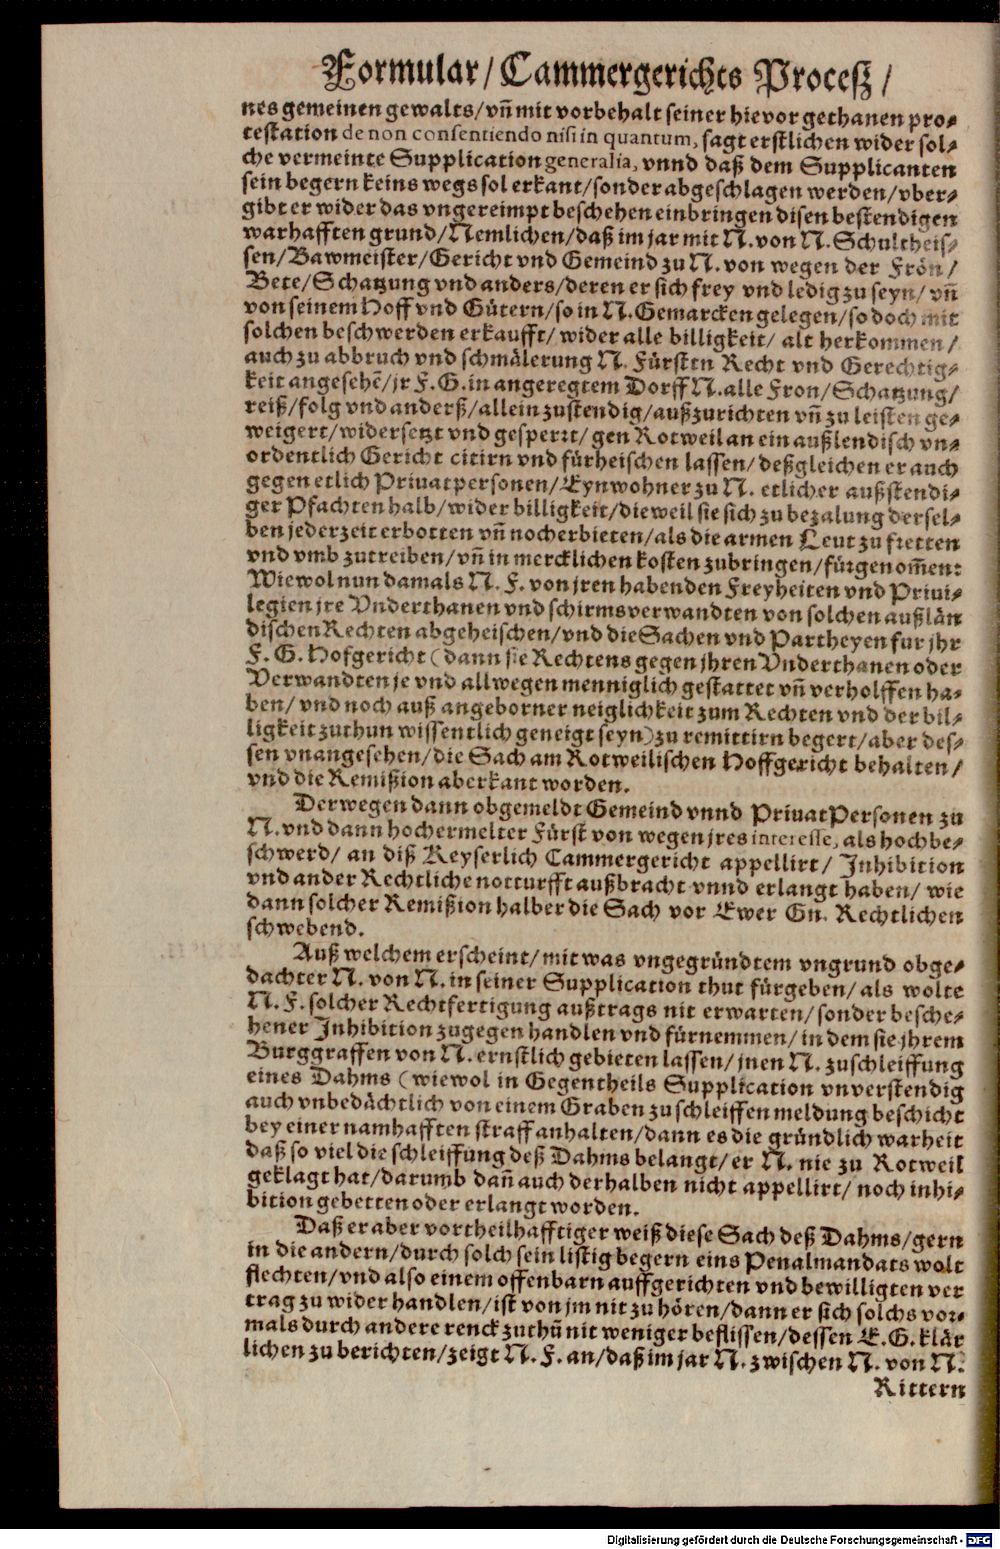 Formular / Cammergerichts Proceß /
nes gemeinen gewalts / vñ mit vorbehalt seiner hievor gethanen pro⸗
testation de non consentiendo nisi in quantum, sagt erstlichen wider sol⸗
che vermeinte Supplication generalia, vnnd daß dem Supplicanten
sein begern keins wegs sol erkant / sonder abgeschlagen werden / vber⸗
gibt er wider das vngereimpt beschehen einbringen disen bestendigen
warhafften grund / Nemlichen / daß im jar mit N. von N. Schultheis⸗
sen / Bawmeister / Gericht vnd Gemeind zu N. von wegen der Frön /
Bete / Schatzung vnd anders / deren er sich frey vnd ledig zu seyn / vñ
von seinem Hoff vnd Gütern / so in N. Gemarcken gelegen / so doch mit
solchen beschwerden erkaufft / wider alle billigkeit / alt herkommen /
auch zu abbruch vnd schmälerung N. Fürsten Recht vnd Gerechtig⸗
keit angesehē / jr F. G. in angeregtem Dorff N. alle Fron / Schatzung /
reiß / folg vnd anderß / allein zustendig / außzurichten vñ zu leisten ge⸗
weigert / widersetzt vnd gesperrt / gen Rotweil an ein außlendisch vn⸗
ordentlich Gericht citirn vnd fürheischen lassen / deßgleichen er auch
gegen etlich Priuatpersonen / Eynwohner zu N. etlicher außstendi⸗
ger Pfachten halb / wider billigkeit / dieweil sie sich zu bezalung dersel⸗
ben jederzeit erbotten vñ noch erbieten / als die armen Leut zu fretten
vnd vmb zutreiben / vñ in mercklichen kosten zubringen / fürgenom̃en:
Wiewol nun damals N. F. von jren habenden Freyheiten vnd Priui⸗
legien jre Vnderthanen vnd schirmsverwandten von solchen außlän
dischen Rechten abgeheischen / vnd die Sachen vnd Partheyen fur jhr
F. G. Hofgericht (dann sie Rechtens gegen jhren Vnderthanen oder
Verwandten je vnd allwegen menniglich gestattet vñ verholffen ha⸗
ben / vnd noch auß angeborner neiglichkeit zum Rechten vnd der bil⸗
ligkeit zuthun wissentlich geneigt seyn) zu remittirn begert / aber des⸗
sen vnangesehen / die Sach am Rotweilischen Hoffgericht behalten /
vnd die Remißion aberkant worden.
Derwegen dann obgemeldt Gemeind vnnd PriuatPersonen zu
N. vnd dann hochermelter Fürst von wegen jres interesse, als hochbe⸗
schwerd / an diß Keyserlich Cammergericht appellirt / Inhibition
vnd ander Rechtliche notturfft außbracht vnnd erlangt haben / wie
dann solcher Remißion halber die Sach vor Ewer Gn. Rechtlichen
schwebend.
Auß welchem erscheint / mit was vngegründtem vngrund obge⸗
dachter N. von N. in seiner Supplication thut fürgeben / als wolte
N. F. solcher Rechtfertigung außtrags nit erwarten / sonder besche⸗
hener Inhibition zugegen handlen vnd fürnemmen / in dem sie jhrem
Burggraffen von N. ernstlich gebieten lassen / jnen N. zuschleiffung
eines Dahms (wiewol in Gegentheils Supplication vnverstendig
auch vnbedächtlich von einem Graben zu schleiffen meldung beschicht
bey einer namhafften straff anhalten / dann es die gründlich warheit
daß so viel die schleiffung deß Dahms belangt / er N. nie zu Rotweil
geklagt hat / darumb dañ auch derhalben nicht appellirt / noch inhi⸗
bition gebetten oder erlangt worden.
Daß er aber vortheilhafftiger weiß diese Sach deß Dahms / gern
in die andern / durch solch sein listig begern eins Penalmandats wolt
flechten / vnd also einem offenbarn auffgerichten vnd bewilligten ver
trag zu wider handlen / ist von jm nit zu hören / dann er sich solchs vor⸗
mals durch andere renck zuthū nit weniger beflissen / dessen E. G. klär
lichen zu berichten / zeigt N. F. an / daß im jar N. zwischen N. von N.
Rittern
Digitalisierung gefördert durch die Deutsche Forschungsgemeinschaft - DFG